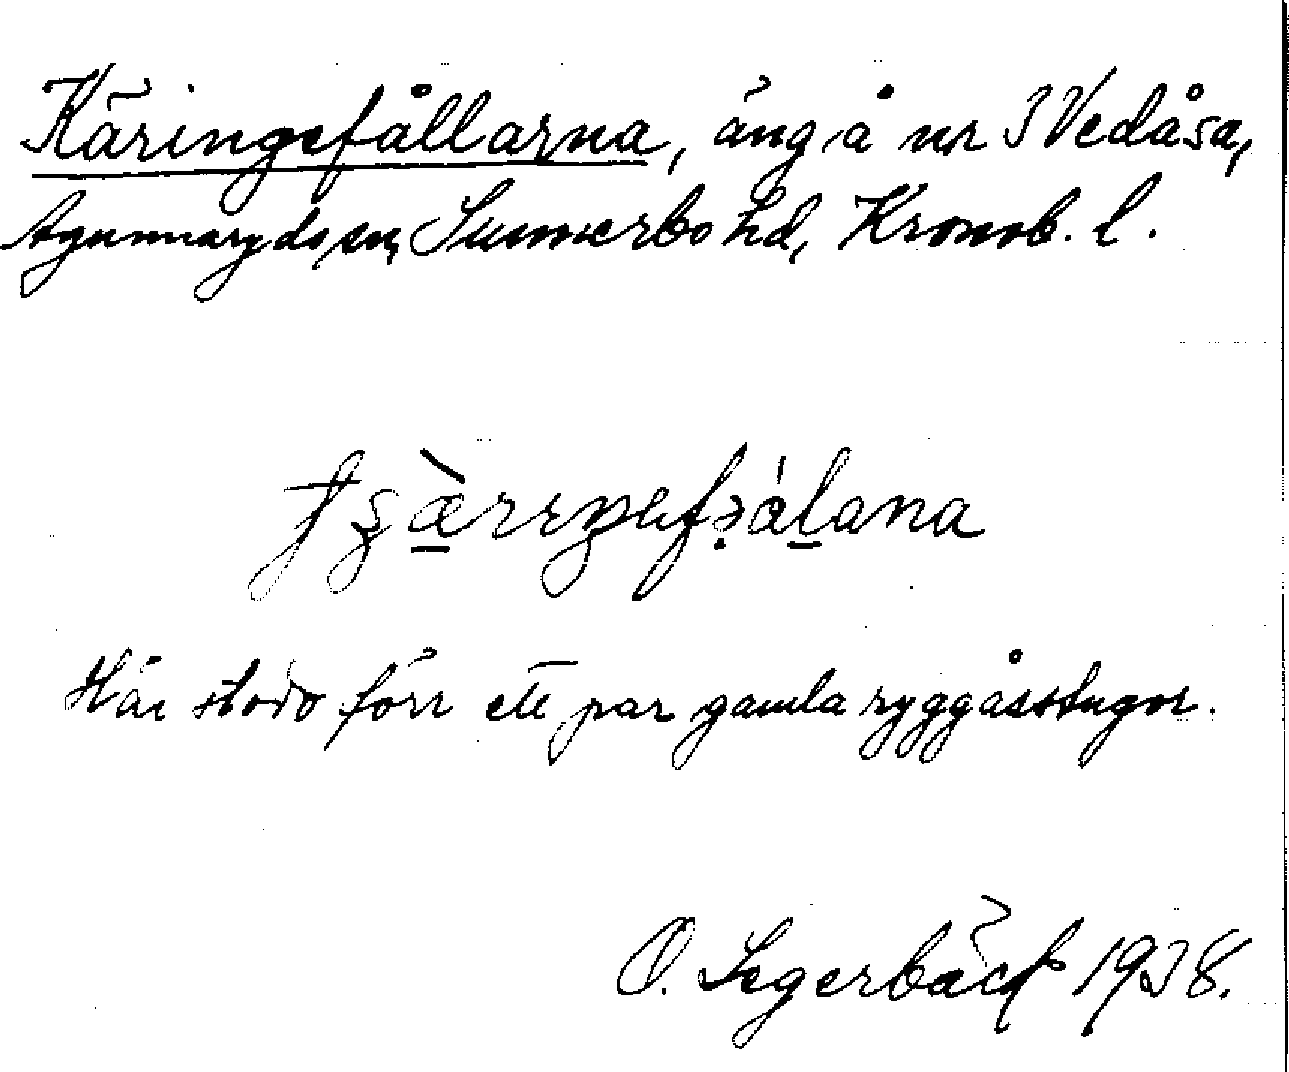 Käringefållarna, äng å nr 3 Vedåsa,
Agunnaryds sn, Sunnerbo hd, Kronob. l.
Här stodo förr ett par gamla ryggåsstugor.
O. Segerbäck 1938.